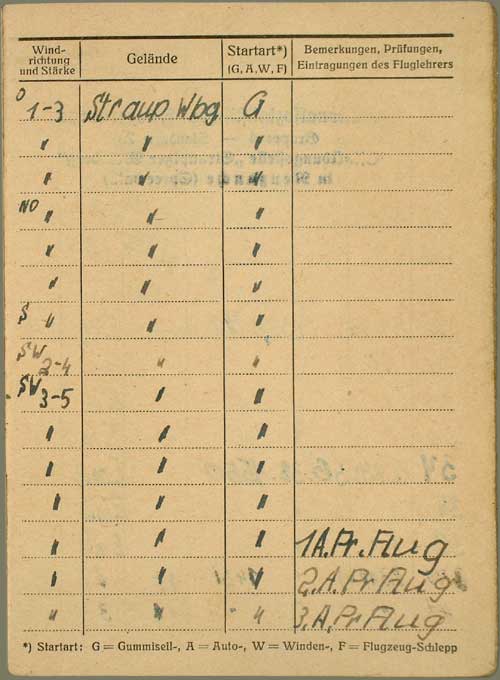 Wind-
richtung
und Stärke
Gelände
Startart*)
(G, A, W, F)
Bemerkungen, Prüfungen,
Eintragungen des Fluglehrers
O 1-3 Straup Wbg G
" " "
" " "
NO " " "
" " "
" " "
S " " "
SW 2-4 " "
SW 3-5 " "
" " "
" " "
" " "
" " " 1.A.Pr.Flug
" " " 2.A.Pr Flug
" " " 3.A.Pr Flug
*) Startart: G = Gummiseil-, A = Auto-, W = Winden-, F = Flugzeug-Schlepp